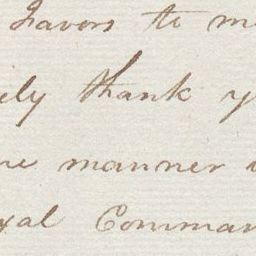 favors to m
ily thank y
ne manner
yal Comman